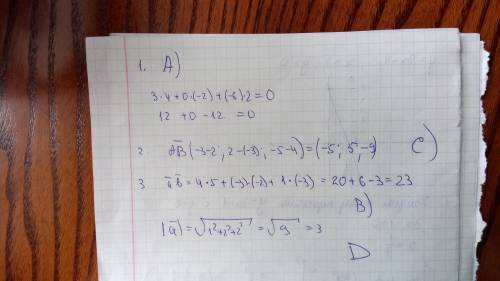 1. A)
3·4+0·(-2)+(-6)·2=0
12 +0 -12 =0
2. AB(-3-2; 2-(-3); -5-4)=(-5; 5; -9) C)
3. ab=4·5+(-3)·(-2)+1·(-3)=20+6-3=23
B)
|a|=√1²+2²+2² =√9 =3
D